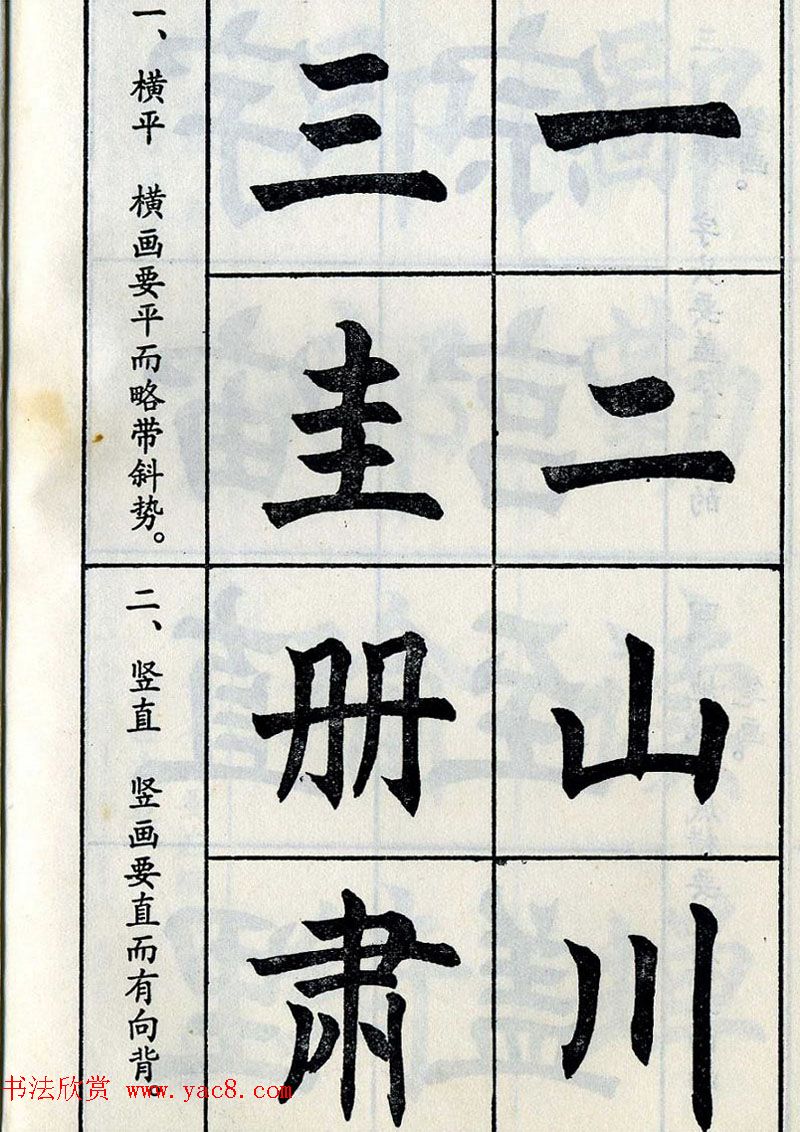 一、横平 横画要平而略带斜势。
一
三
二
圭
二、竖直 竖画要直而有向背。
山
册
川
肃
书法欣赏 www.yac8.com